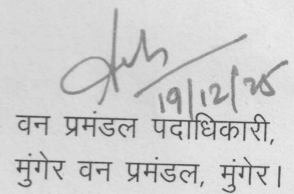 19/12/25
वन प्रमंडल पदाधिकारी,
मुंगेर वन प्रमंडल, मुंगेर।